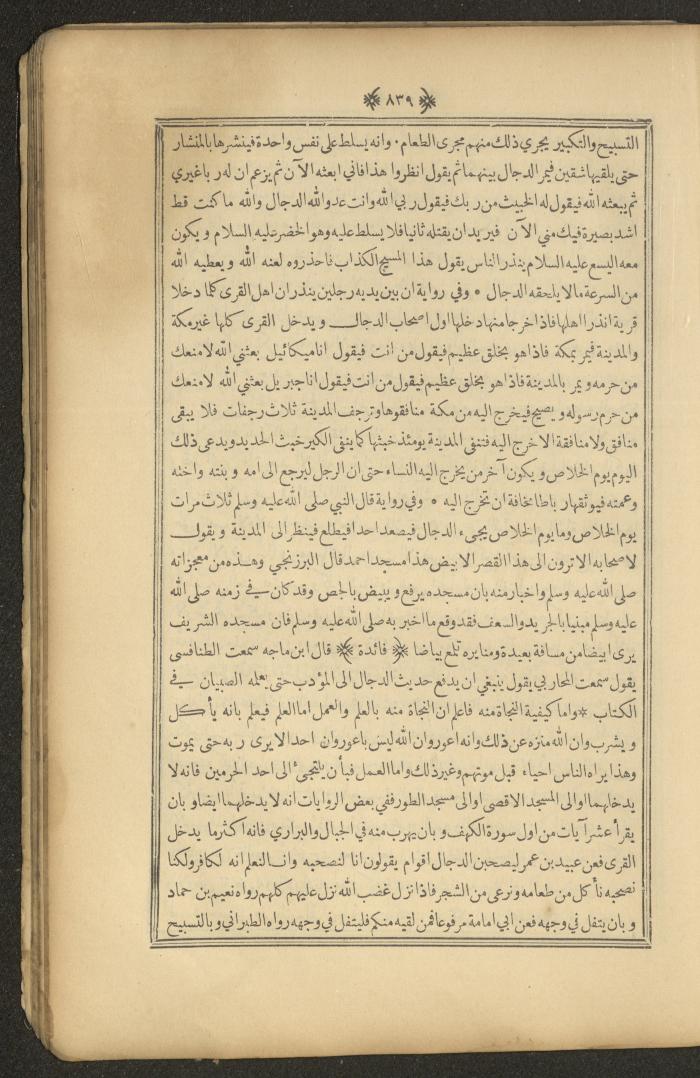 ﴿ ٨٣٩ ﴾
التسبيح والتكبير يجري ذلك منهم مجرى الطعام. وانه يسلط على نفس واحدة فينشرها بالمنشار
حتى يلقيها شقين فيمر الدجال بينهما ثم يقول انظروا هذا فاني ابعثه الآن ثم يزعم ان له ربا غيري
ثم يبعثه الله فيقول له الخبيث من ربك فيقول ربي الله وانت عدو الله الدجال والله ما كنت قط
اشد بصيرة فيك مني الآن فيريد ان يقتله ثانيا فلا يسلط عليه وهو الخضر عليه السلام ويكون
معه اليسع عليه السلام ينذر الناس يقول هذا المسيح الكذاب فاحذروه لعنه الله ويعطيه الله
من السرعة ما لا يلحقه الدجال * وفي رواية ان بين يديه رجلين ينذران اهل القرى كلما دخلا
قرية انذرا اهلها فاذا خرجا منها دخلها اول اصحاب الدجال ويدخل القرى كلها غير مكة
والمدينة فيمر بمكة فاذا هو بخلق عظيم فيقول من انت فيقول انا ميكائيل بعثني الله لامنعك
من حرمه ويمر بالمدينة فاذا هو بخلق عظيم فيقول من انت فيقول انا جبريل بعثني الله لامنعك
من حرم رسوله ويصيح فيخرج اليه من مكة منافقوها وترجف المدينة ثلاث رجفات فلا يبقى
منافق ولا منافقة الا خرج اليه فتنفي المدينة يومئذ خبثها كما ينفي الكير خبث الحديد ويدعى ذلك
اليوم يوم الخلاص ويكون آخر من يخرج اليه النساء حتى ان الرجل ليرجع الى امه وبنته واخته
وعمته فيوثقها رباطا مخافة ان تخرج اليه * وفي رواية قال النبي صلى الله عليه وسلم ثلاث مرات
يوم الخلاص وما يوم الخلاص يجيء الدجال فيصعد احدا فيطلع فينظر الى المدينة ويقول
لاصحابه الا ترون الى هذا القصر الابيض هذا مسجد احمد قال البرزنجي وهذه من معجزاته
صلى الله عليه وسلم واخبار منه بان مسجده يرفع ويبيض بالجص وقد كان في زمنه صلى الله
عليه وسلم مبنيا بالجريد والسعف فقد وقع ما اخبر به صلى الله عليه وسلم فان مسجده الشريف
يرى ابيض من مسافة بعيدة ومنايره تلمع بياضا ﴿ فائدة ﴾ قال ابن ماجه سمعت الطنافسى
يقول سمعت المحاربي يقول ينبغي ان يدفع حديث الدجال الى المؤدب حتى يعلمه الصبيان في
الكتاب * واما كيفية النجاة منه فاعلم ان النجاة منه بالعلم والعمل اما العلم فيعلم بانه يأكل
ويشرب وان الله منزه عن ذلك وانه اعور وان الله ليس باعور وان احدا لا يرى ربه حتى يموت
وهذا يراه الناس احياء قبل موتهم وغير ذلك واما العمل فبأن يلتجيء الى احد الحرمين فانه لا
يدخلهما او الى المسجد الاقصى او الى مسجد الطور ففي بعض الروايات انه لا يدخلهما ايضا و بان
يقرأ عشر آيات من اول سورة الكهف و بان يهرب منه في الجبال والبراري فانه اكثر ما يدخل
القرى فعن عبيد بن عمر ليصحبن الدجال اقوام يقولون انا لنصحبه وانا لنعلم انه لكافر ولكنا
نصحبه نأكل من طعامه ونرعى من الشجر فاذا نزل غضب الله نزل عليهم كلهم رواه نعيم بن حماد
و بان يتفل في وجهه فعن ابي امامة مرفوعا فمن لقيه منكم فليتفل في وجهه رواه الطبراني و بالتسبيح